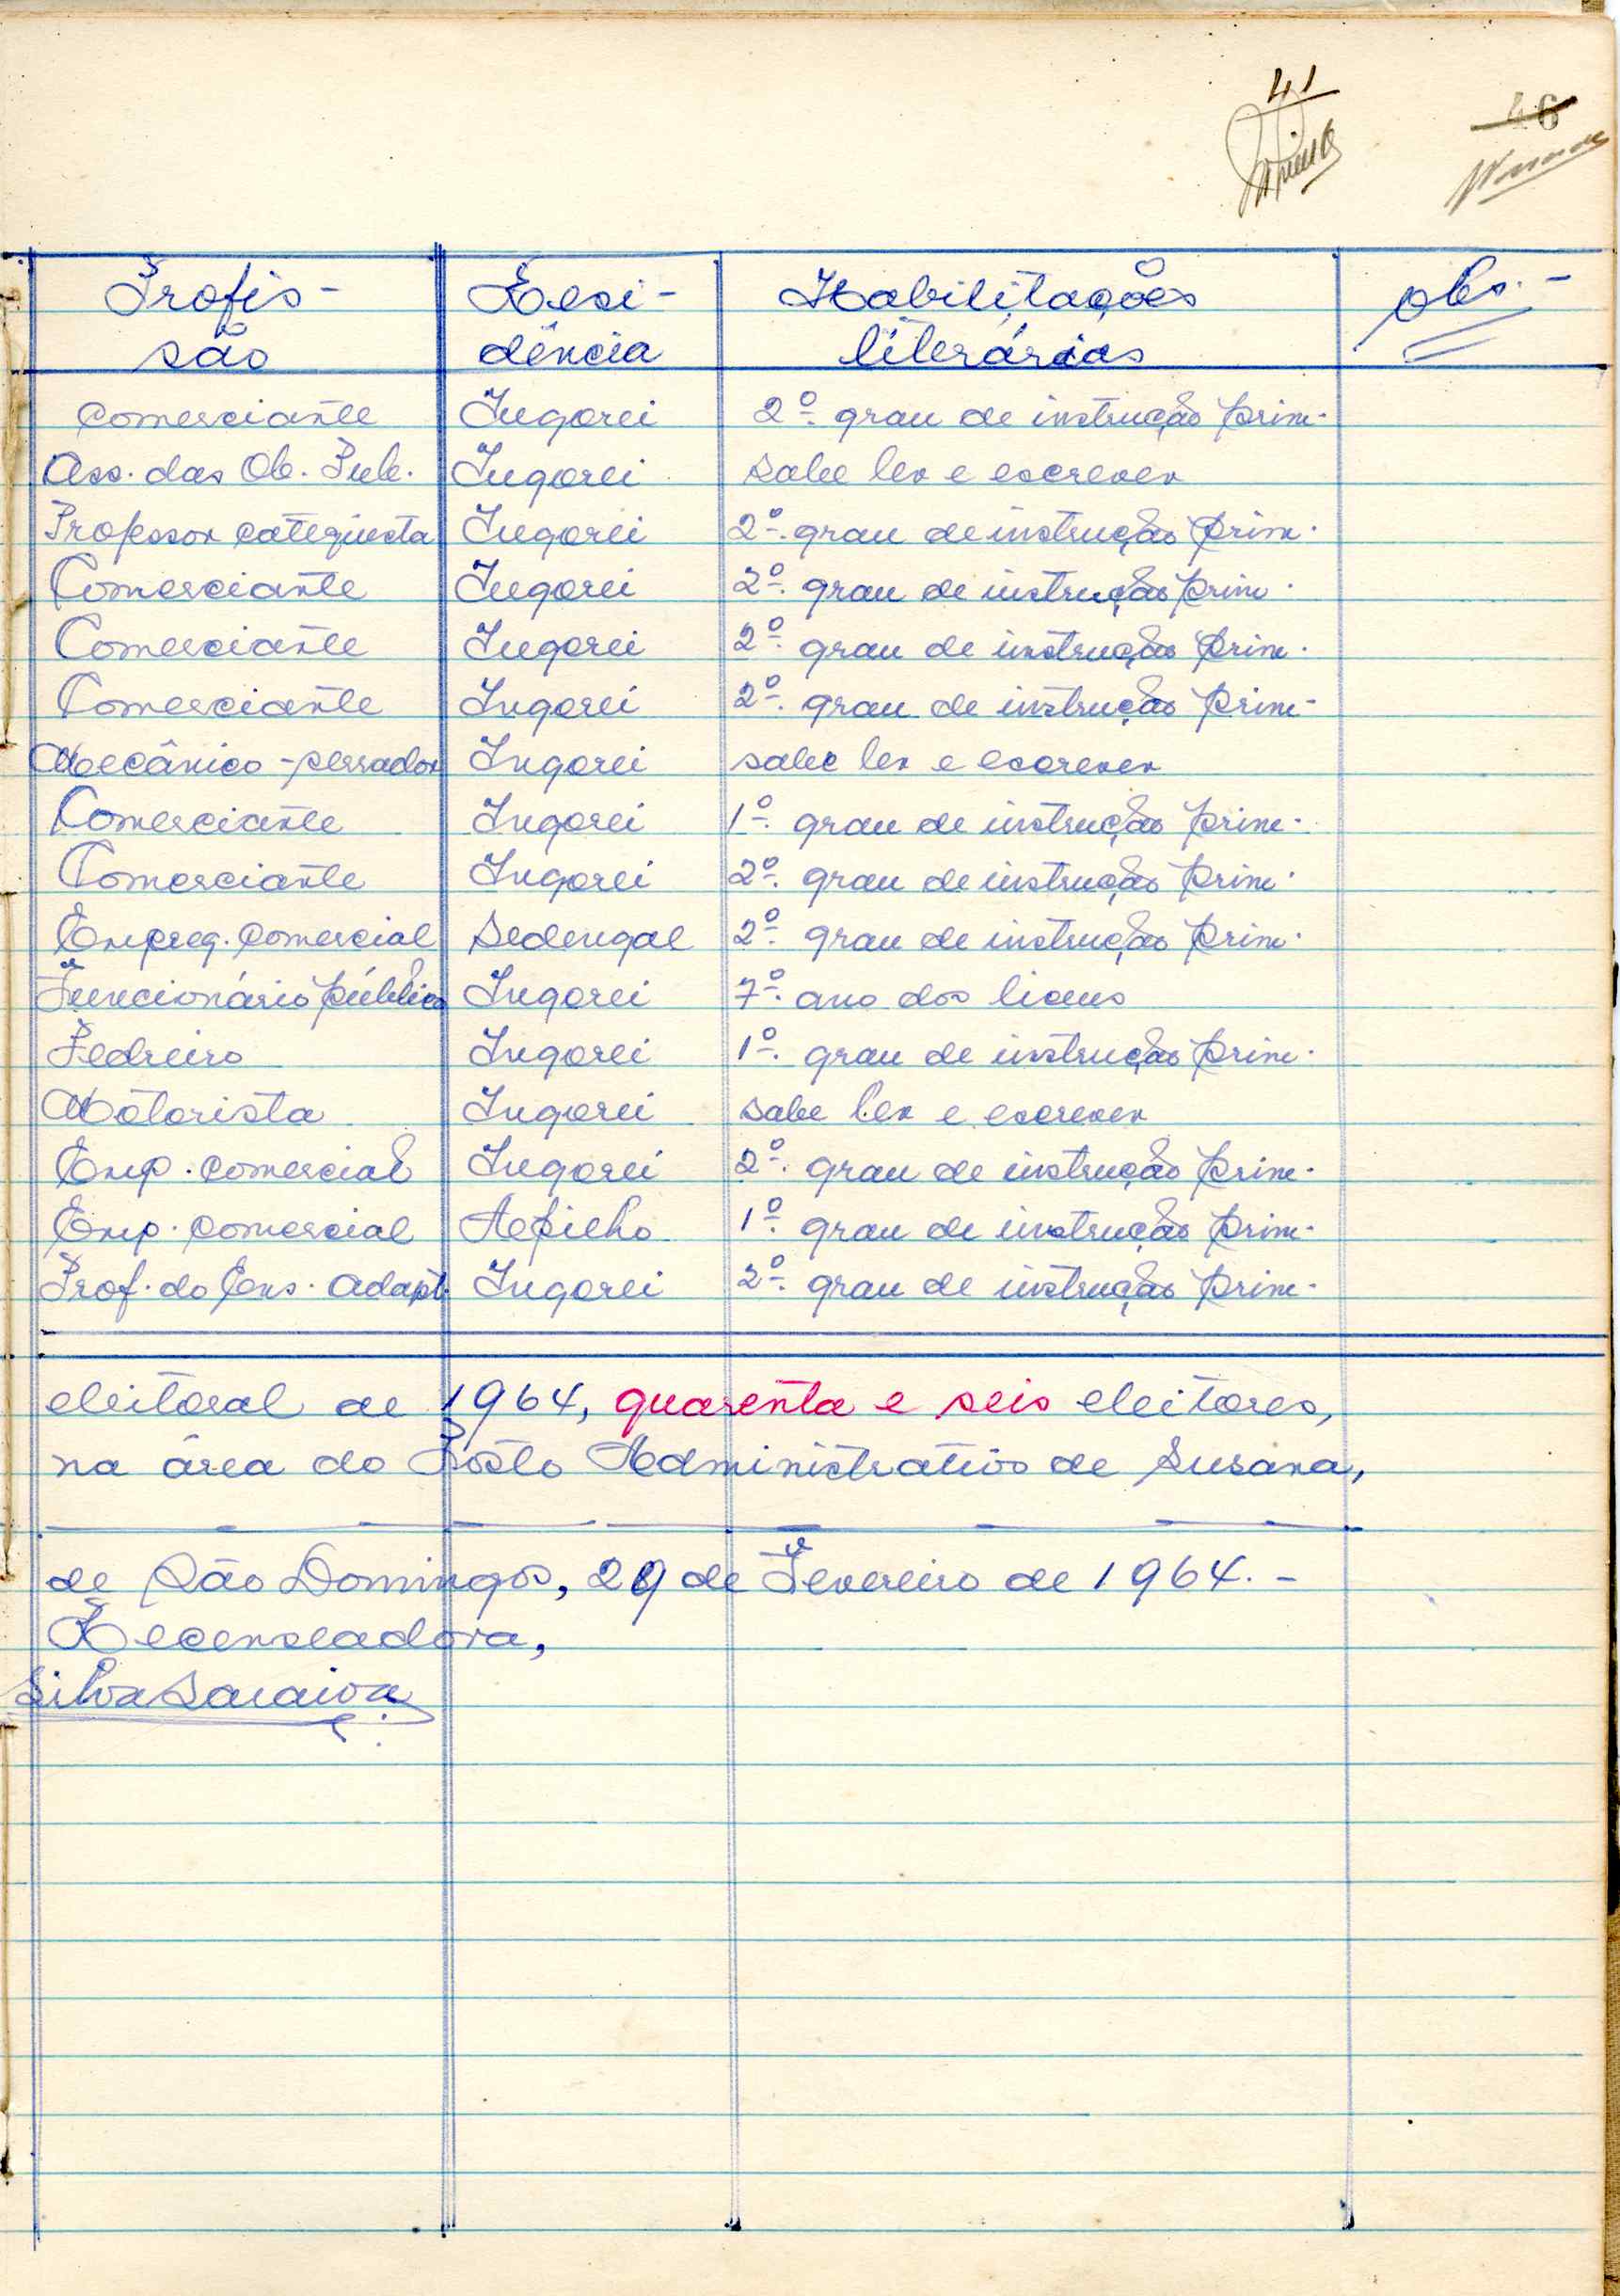 41
46
Profis- Resi- Habilitações obs.-
são dência literárias
Comerciante Ingorei 2º. grau de instrução prim.
Ass. das Ob. Pub. Ingorei sabe ler e escrever
Professor catequista Ingorei 2º. grau de instrução prim.
Comerciante Ingorei 2º. grau de instrução prim.
Comerciante Ingorei 2º. grau de instrução prim.
Comerciante Ingorei 2º. grau de instrução prim.
Mecânico-serrador Ingorei sabe ler e escrever
Comerciante Ingorei 1º. grau de instrução prim.
Comerciante Ingorei 2º. grau de instrução prim.
Empreg. Comercial Sedengal 2º. grau de instrução prim.
Funcionário público Ingorei 7º. ano dos liceus
Pedreiro Ingorei 1º. grau de instrução prim.
Motorista Ingorei sabe ler e escrever
Emp. comercial Ingorei 2º. grau de instrução prim.
Emp. comercial Apilho 1º. grau de instrução prim.
Prof. do Ens. Adapt. Ingorei 2º. grau de instrução prim.
eleitoral de 1964, quarenta e seis eleitores,
na área do Posto Administrativo de Susana,
de São Domingos, 29 de Fevereiro de 1964.-
Recenseadora,
Silva Saraiva